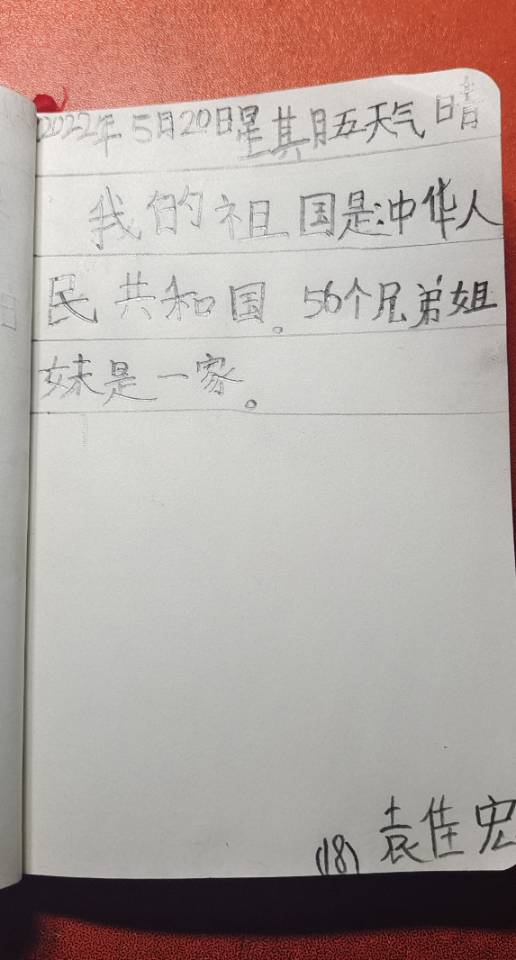 2022年5月20日星其月五天气晴
我的祖国是中华人
民共和国。56个兄弟姐
妹是一家。
(18) 袁佳宏